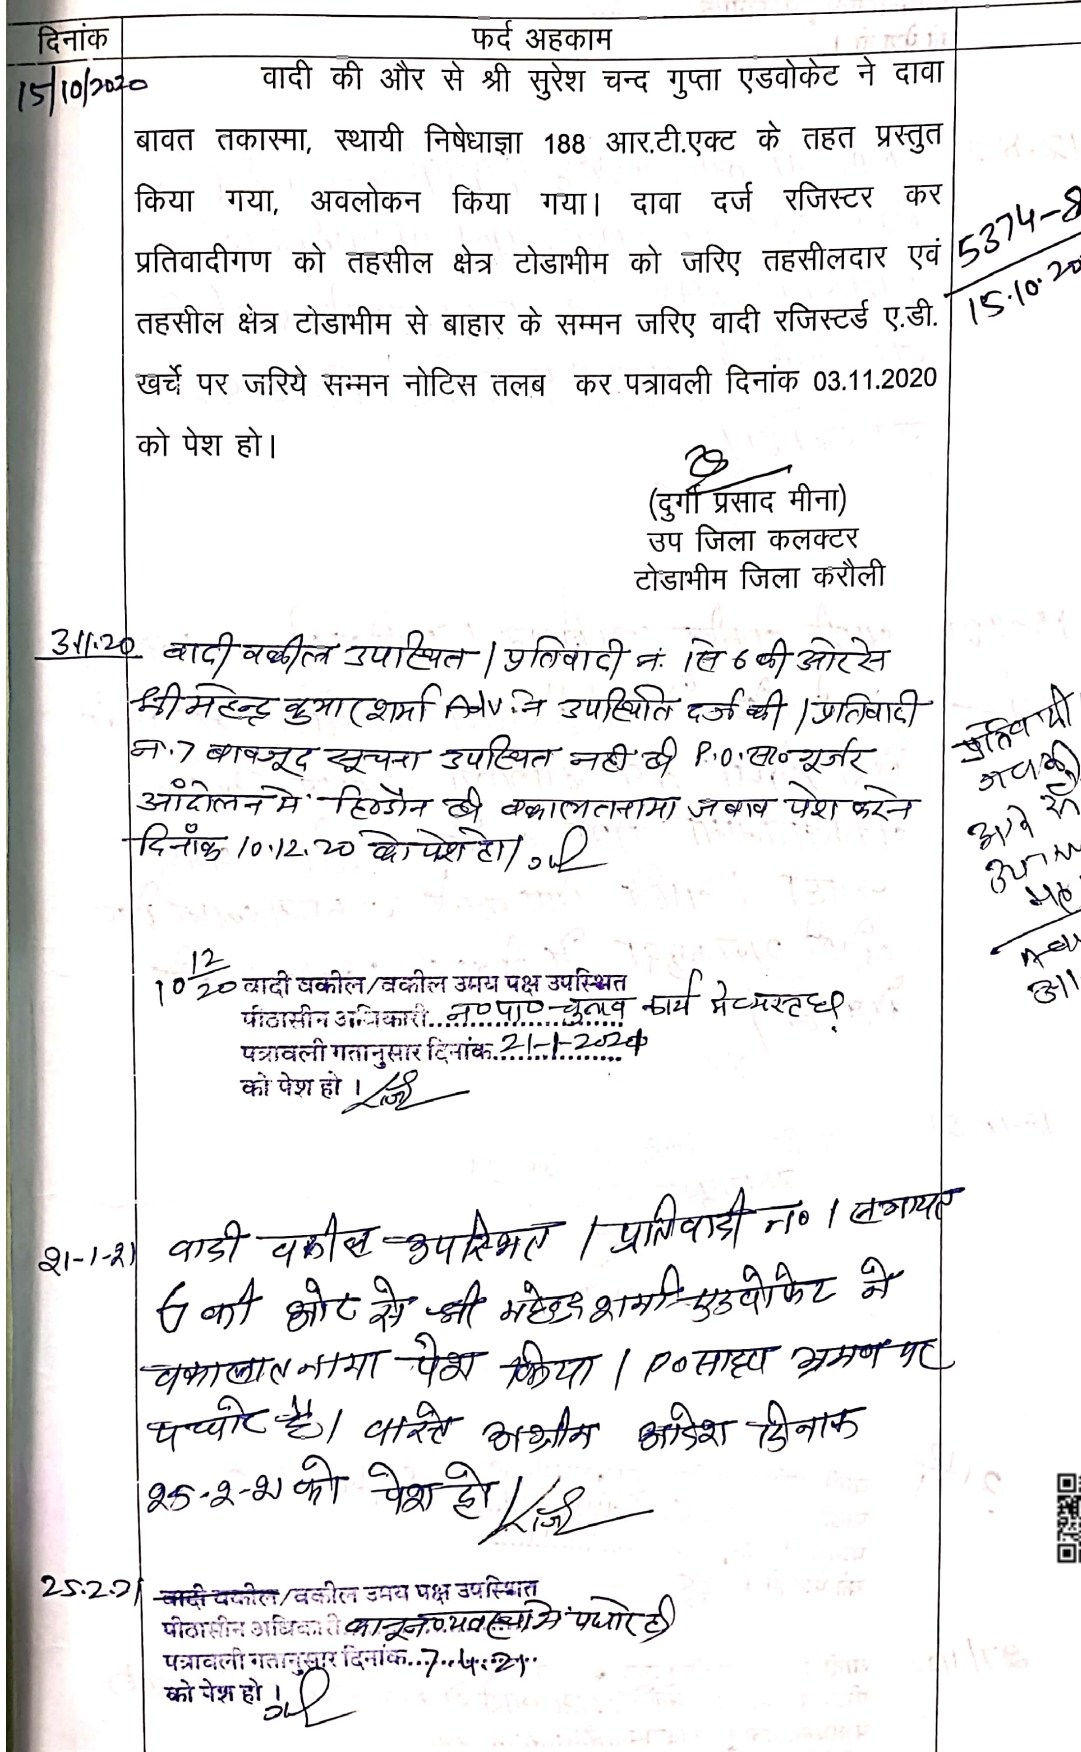 दिनांक
फर्द अहकाम
15/10/2020
वादी की और से श्री सुरेश चन्द गुप्ता एडवोकेट ने दावा
बावत तकास्मा, स्थायी निषेधाज्ञा 188 आर.टी.एक्ट के तहत प्रस्तुत
किया गया, अवलोकन किया गया। दावा दर्ज रजिस्टर कर
प्रतिवादीगण को तहसील क्षेत्र टोडाभीम को जरिए तहसीलदार एवं
तहसील क्षेत्र टोडाभीम से बाहार के सम्मन जरिए वादी रजिस्टर्ड ए.डी.
खर्चे पर जरिये सम्मन नोटिस तलब कर पत्रावली दिनांक 03.11.2020
को पेश हो।
5374-8
15.10.20
(दुर्गा प्रसाद मीना)
उप जिला कलक्टर
टोडाभीम जिला करौली
3.11.20 वादी वकील उपस्थित / प्रतिवादी नं. 1 से 6 की ओर से
श्री महेन्द्र कुमार शर्मा Adv. ने उपस्थिति दर्ज की / प्रतिवादी
न. 7 बावजूद सूचना उपस्थित नही P.O. सा० गूर्जर
आंदोलन मे हिण्डौन वकालतनामा जवाब पेश करने
दिनाँक 10.12.20 को पेश हो/
प्रतिवादी
10 12/20 वादी वकील/वकील उभय पक्ष उपस्थित
पीठासीन अधिकारी न०पा० चुनाव कार्य मे व्यस्त है
पत्रावली गतानुसार दिनांक 21-1-2021
को पेश हो ।
21-1-21 वादी वकील उपस्थित / प्रतिवादी न० 1 लगायत
6 की ओर से श्री महेन्द्र शर्मा एडवोकेट ने
वकालातनामा पेश किया / P० साहब भ्रमण पर
पधारे है/ वास्ते अग्रीम आदेश दिनाक
25-2-21 को पेश हो/
25.2.21 वादी वकील/वकील उभय पक्ष उपस्थित
पीठासीन अधिकारी कानून व्यवस्था में पधारे है
पत्रावली गतानुसार दिनांक 7.4.21
को पेश हो ।